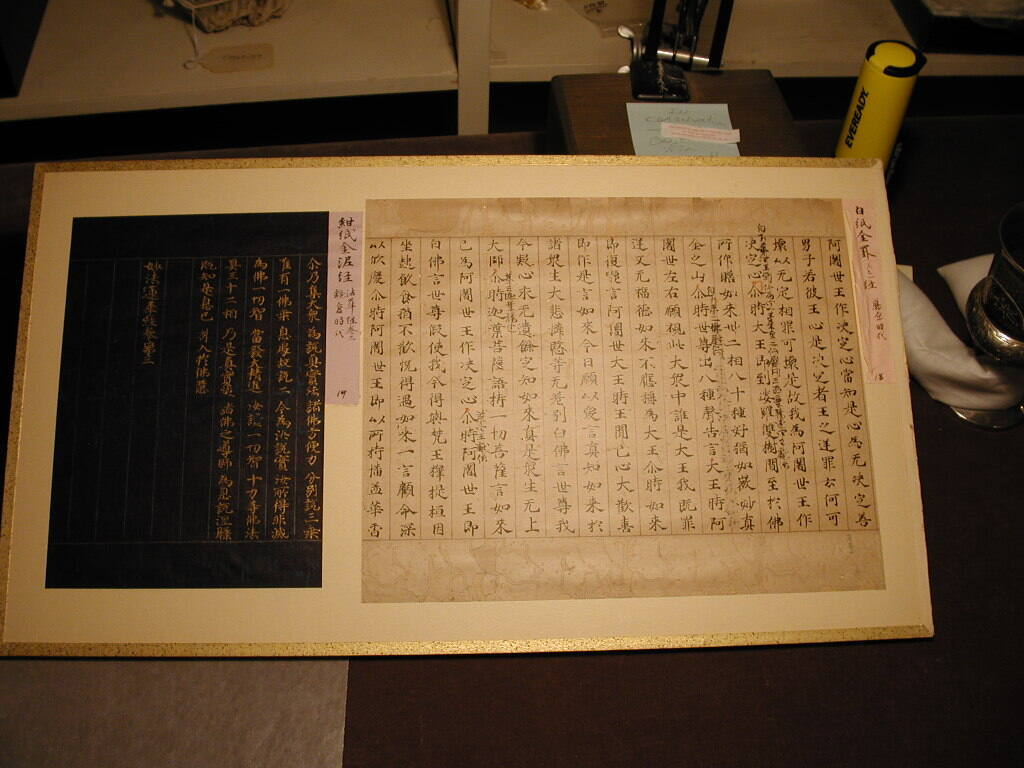 EVEREADY
白紙金界
鎌倉時代
18
阿闍世王作决定心當知是心為无决定善
男子若彼王心是决定者王之逆罪云何可
壞以无定相罪可壞是故我為阿闍世王作
决定心尒時大王即到娑羅雙樹間至於佛
所仰瞻如來卅二相八十種好猶如微妙真
金之山尒時世尊出八種聲告言大王時阿
闍世左右顧視此大衆中誰是大王我既罪
逆又无福德如來不應稱為大王尒時如來
即復喚言阿闍世大王時王聞已心大歡喜
即作是言如來今日顧以愛言真知如來於
諸衆生大悲憐愍等无差別白佛言世尊我
今疑心永无遺餘定知如來真是衆生无上
大師尒時迦葉菩薩語持一切菩薩言如來
已為阿闍世王作决定心尒時阿闍世王即
白佛言世尊假使我今得與梵王釋提桓因
坐起飲食猶不歡悅得遇如來一言顧命深
以欣慶尒時阿闍世王即以所持幡蓋華香
紺紙金泥経 法華経巻三
鎌倉時代
19
尒乃集大衆 為說真實法 諸佛方便力 分別說三乘
唯有一佛乘 息處故說二 今為汝說實 汝所得非滅
為佛一切智 當發大精進 汝證一切智 十力等佛法
具三十二相 乃是真實滅 諸佛之導師 為息說涅槃
既知是息已 引入於佛慧
妙法蓮華經卷第三